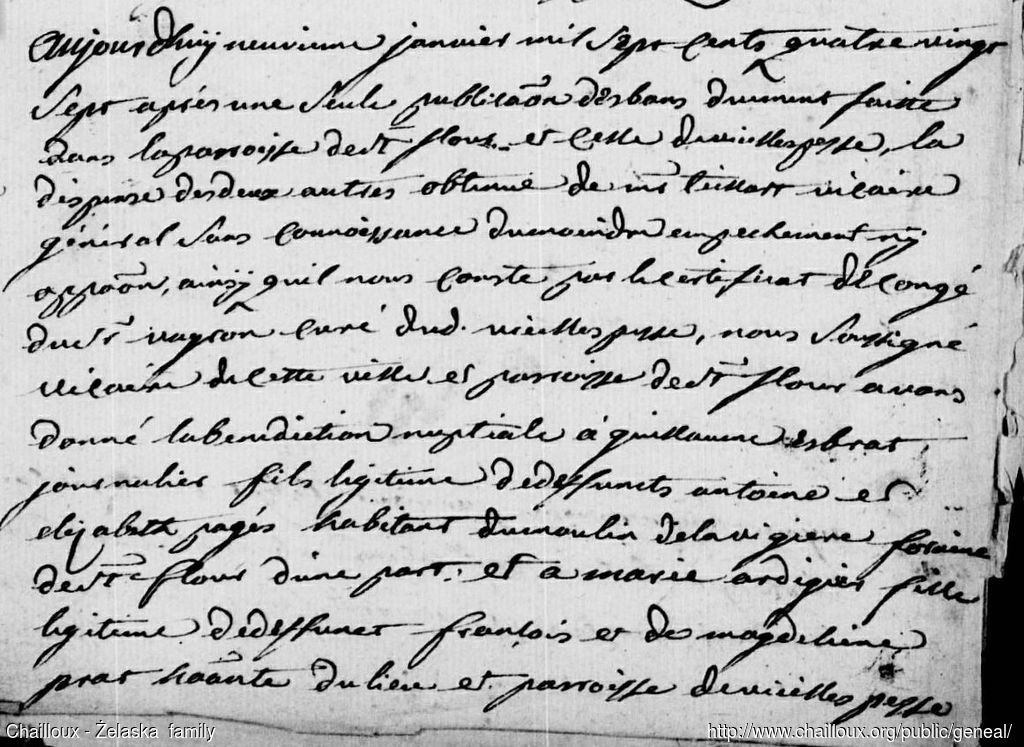 aujourdhuy neuvieme janvier mil sept cents quatre vingt
sept après une seule publicaõn desbans duement faitte
dans laparroisse de st flour et celle de vieillespesse, la
dispense desdeux autres obtenue de mr vicaire
général sans connoissance dumoindre empechement ny
oppaõn, ainsy quil nous conste par le certificat de congé
du sr vayron curé dud. vieillespesse, nous soussigné
vicaire de cette ville et parroisse de st flour avons
donné labenediction nuptiale à guillaume esbrat
journalier fils legitime dedeffuncts antoine et
elizabeth pagès habitant dumoulin delavigiere foraine
de st flour dune part, et a marie ardigier fille
legitime dedeffunct françois et de magdeleine
prat hãante dulieu et parroisse devieillespesse
Chailloux - Żelaska family
http://www.chailloux.org/public/geneal/